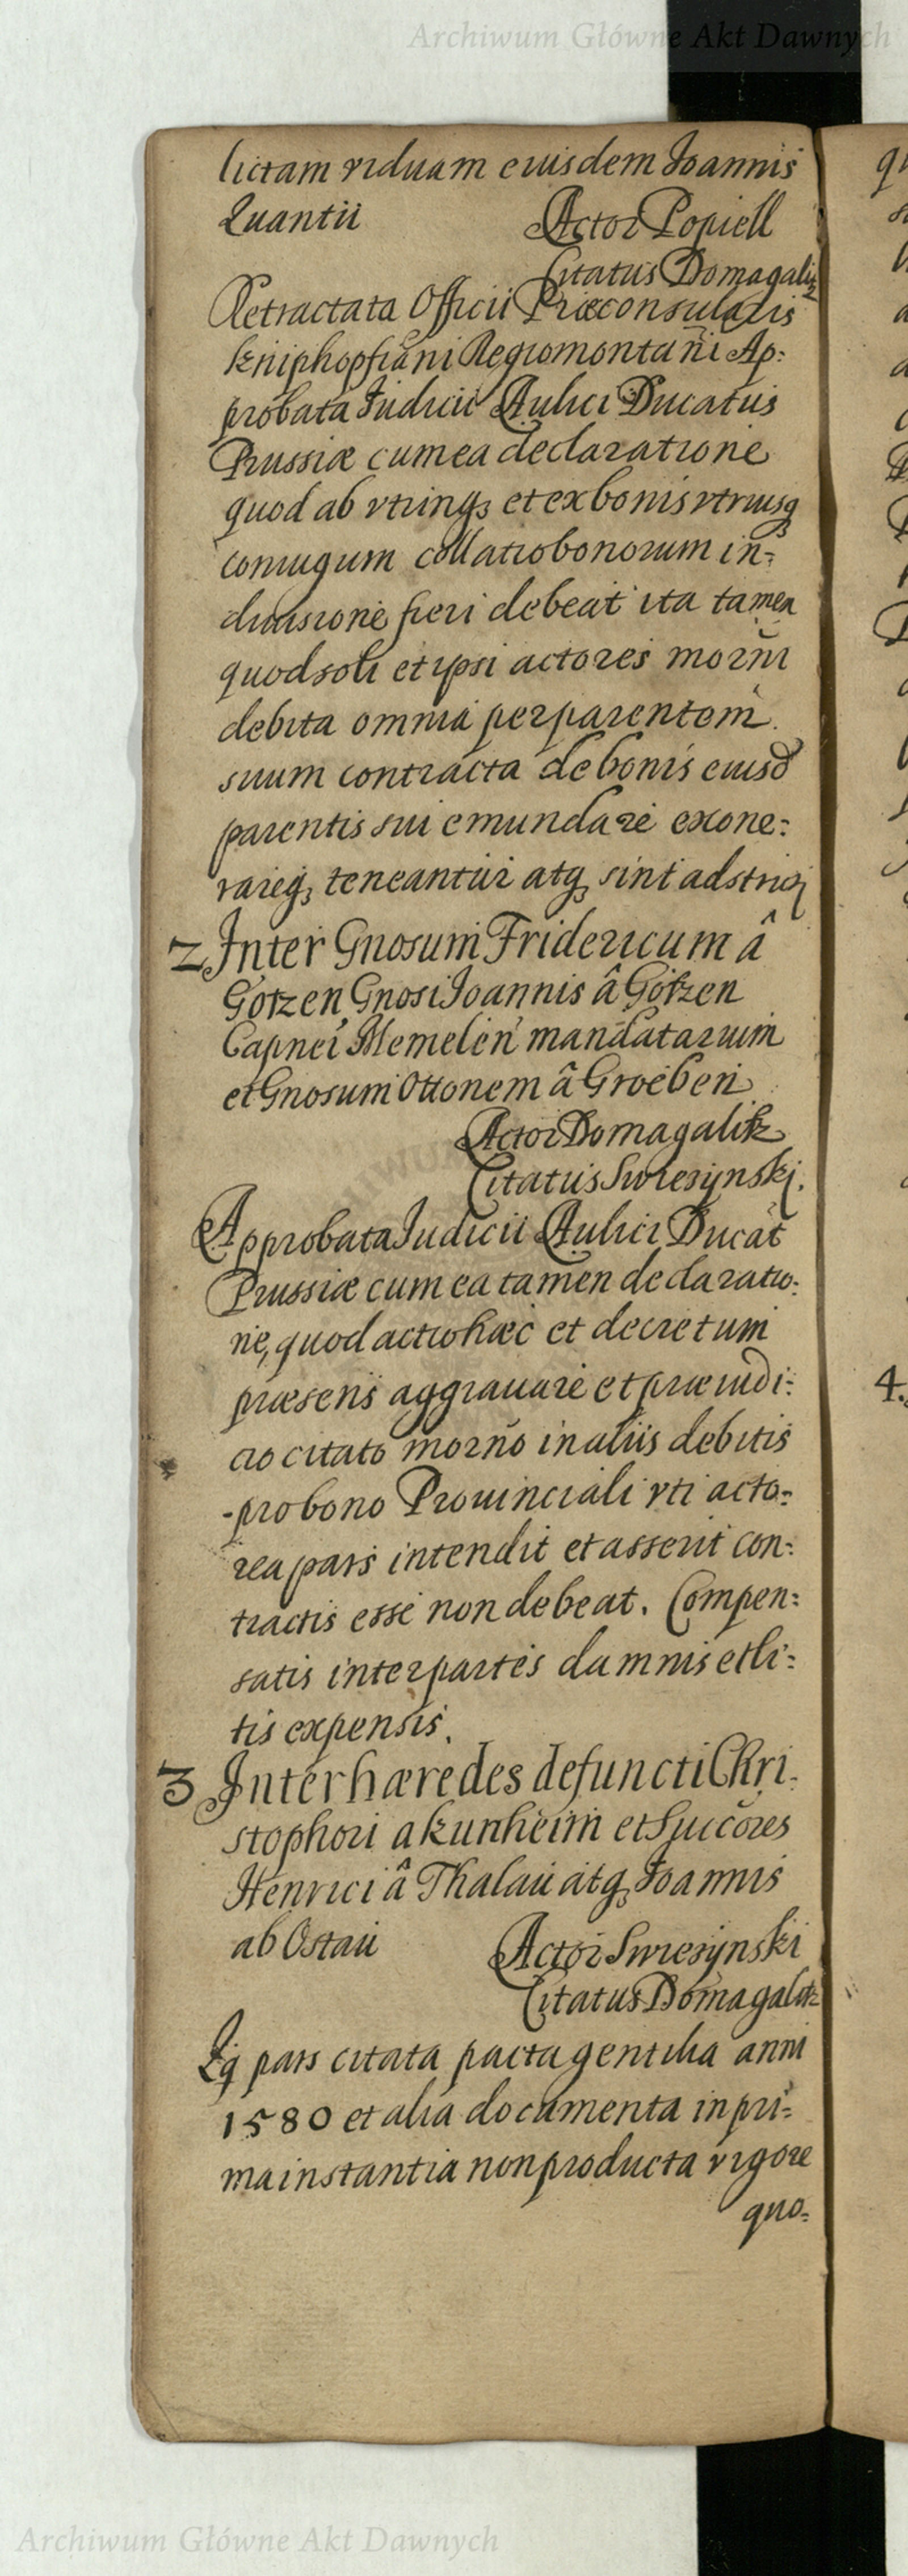 Archiwum Główne Akt Dawnych
lictam viduam eiusdem Joannis
Quantii Actor Popiell
Citatus Domagalitz
Retractata Officii Præconsularis
Kniphopfiani Regiomontani Ap:
probata Judicii Aulici Ducatus
Prussiæ cum ea declaratione
quod ab utrinq; et ex bonis vtriusq;
coniugum collatio bonorum in:
diuisione fieri debeat ita tamen
quod soli et ipsi actores morñi
debita omnia per parentem
suum contracta de bonis eiusd
parentis sui emundare exone:
rareq; teneantur atq; sint adstricti
2 Inter Gnosum Fridericum â
Gotzen Gnosi Joannis â Gotzen
Capnei Memelen mandatarium
et Gnosum Ottonem â Groeben
Actor Domagalitz
Citatus Swiesÿnski.
Approbata Judicii Aulici Ducat
Prussiæ cum ea tamen declaratio:
ne, quod actio hæc et decretum
præsens aggrauare et præiudi:
cio citato morño in aliis debitis
pro bono Prouinciali vti acto:
rea pars intendit et asserit con:
tractis esse non debeat. Compen:
satis inter partes damnis et li:
tis expensis.
3 Inter hæredes defuncti Chri:
stophori a Kunheim et Succores
Henrici â Thalau atq; Joannis
ab Ostau Actor Swiesynski
Citatus Domagalitz
Qq pars citata pacta gentilia anni
1580 et alia documenta in pri:
ma instantia non producta vigore
quo:
4.
Archiwum Główne Akt Dawnych